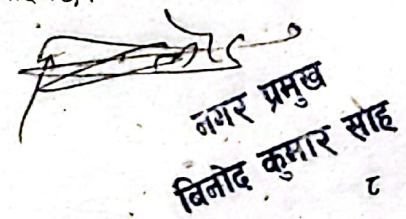 नगर प्रमुख
बिनोद कुमार साह
८